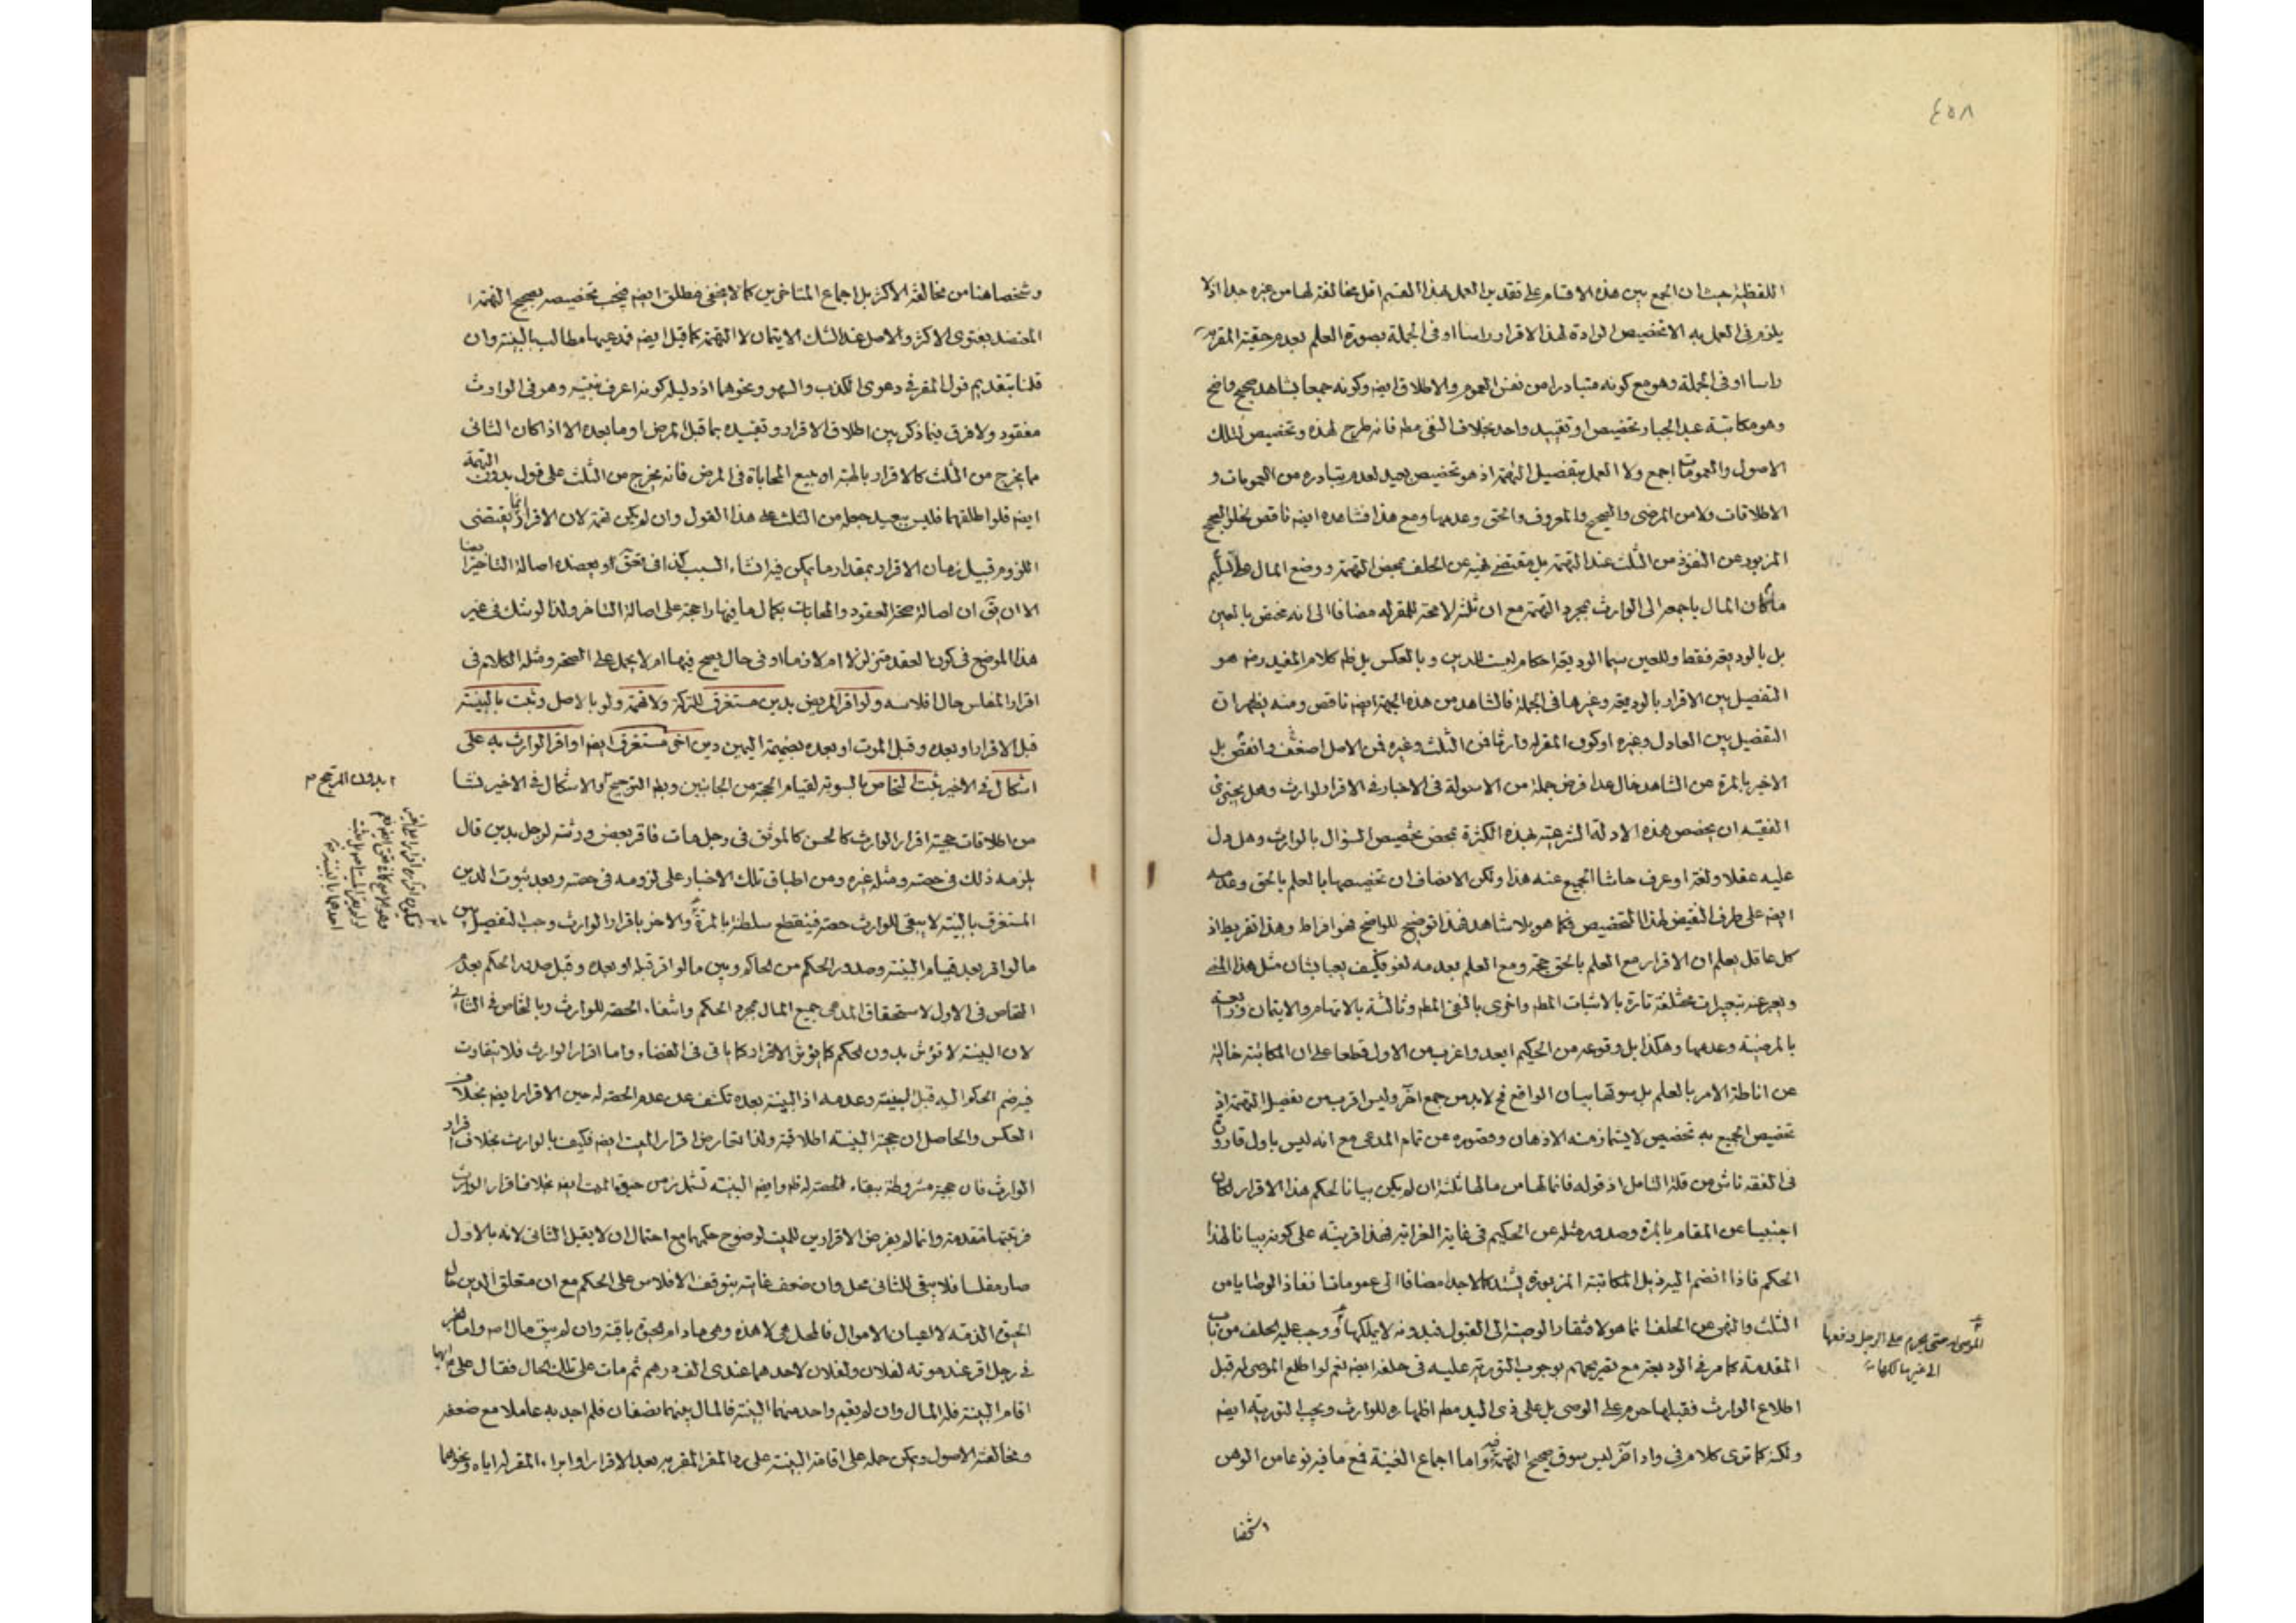 ٤٥٨
اللفظية حيث ان الجمع بين هذه الاقسام على تقدير العمل بهذا القسم اقل مخالفة لها من غيره جدا اذ لا
يلزم فى العمل به الا تخصيص الوادة لهذا الاقرار راسا او فى الجملة بصورة العلم بعدم حقية المقر به
راسا او فى الجملة وهو مع كونه متبادرا من نفس العموم والاطلاق ايضه وكونه جمعا بشاهد صحيح واضح
وهو مكاتبة عبد الجبار تخصيص او تقييد واحد بخلاف النفى مطه فانه طرح لهذه وتخصيص لتلك
الاصول والعمومات اجمع ولا العمل بتفصيل التهمة اذ هو تخصيص بعيد لعدم تبادره من العمومات و
الاطلاقات ولا من المرضى والصحيح والمعروف والحق وعدمها ومع هذا فشاهده ايضه ناقص لخلو الصحيح
المزبور عن النفوذ من الثلث عند التهمة بل مقتضى نهيه عن الحلف بمحض التهمة ووضع المال
المال باجمعه الى الوارث بمجرد التهمة مع ان ثلثه لا محة للمقر له مضافا الى انه مختص بالعين
بل بالوديعة فقط وللعين سيما الوديعة احكام ليست للدين وبالعكس بل ظه كلام المفيد ره هو
التفصيل بين الاقرار بالوديعة وغيرها فى الجملة فالشاهد من هذه الجهة ايضه ناقص ومنه يظهر ان
التفصيل بين العادل وغيره او كون المقر له وارثا فن الثلث وغيره فن الاصل اضعف وانقص بل
الاخير بالمرة عن الشاهد خال عدا فرض جملة من الاسولة فى الاخبار فى الاقرار لوارث وهل يجترئ
الفقيه ان يخصص هذه الادلة الشرعية بهذه الكثرة بمحض تخصيص السؤال بالوارث وهل دل
عليه عقلا ولغة او عرف حاشا الجميع عنه هذا ولكن الانصاف ان تخصيصها بالعلم بالحق وعدمه
ايضه على طرف النقيض لهذا التخصيص فكما هو بلا شاهد فهذا توضيح للواضح فهو افراط وهذا تفريط اذ
كل عاقل يعلم ان الاقرار مع العلم بالحق حجة ومع العلم بعدمه لغو فكيف يعبا بشان مثل هذا المعنى
ويعبر عنه بتعبيرات مختلفة تارة بالاثبات المطه واخرى بالنفى المطه وثالثة بالاتهام والايتمان ورابعة
بالمرضية وعدمها وهكذا بل وقوعه من الحكيم ابعد واغرب من الاول قطعا على ان المكاتبة خالية
عن اناطة الامر بالعلم بل سوقها بيان الواقع فح لابد من جمع اخر وليس اقرب من تفصيل التهمة اذ
تخصيص الجميع به تخصيص لا يشمازمنه الاذهان وقصوره عن تمام المدعى مع انه ليس باول قارورة
فى الفقه ناش من قلة التامل اذ قوله فانما لها من مالها ثلثه ان لم يكن بيانا لحكم هذا الاقرار لكان
اجنبيا عن المقام بالمرة وصدور مثله عن الحكيم فى غاية الغرابة فهذا قرينة على كونه بيانا لهذا
الحكم فاذا انضم اليه ذيل المكاتبة المزبورة يشتد كالاجدا مضافا الى عمومات نفاذ الوصايا من
الثلث والنهى عن الحلف انما هو لافتقار الوصية الى القبول فبدونه لا يملكها ووجب عليه الحلف من باب
المقدمة كما مر فى الوديعة مع تصريحهم بوجوب التورية عليه فى حلفه ايضه نعم لو اطلع الموصى له قبل
اطلاع الوارث فقبلها حرم على الوصى بل على ذى اليد مطه اظهاره للوارث ويجب التورية ايضه
ولكنه كما ترى كلام فى واد اخر ليس سوق صحيح التهمة فيه واما اجماع الغنية فمع ما فيه نوعا من الوهن
وشخصا
الموصى له حتى يحرم على الرجل دفعها
الى غير مالكها
وشخصا هنا من مخالفة الاكثر بل اجماع المتاخرين كما لا يخفى فمطلق ايضه فيجب تخصيصه بصحيح التهمة
المعتضد بفتوى الاكثر والاصل عند الشك الايتمان لا التهمة كما قيل ايضه فمدعيها مطالب بالبينة وان
قلنا بتقديم قول المقر فى دعوى الكذب والسهو ونحوهما اذ دليله كونه اعرف بنيته وهو فى الوارث
مفقود ولا فرق فيما ذكر بين اطلاق الاقرار وتقييده بما قبل المرض او ما بعده الا اذا كان الثانى
ما يخرج من الثلث كالاقرار بالهبة او مبيع المحاباة فى المرض فانه يخرج من الثلث على قول بدون التهمة
ايضه فلو اطلقهما فليس ببعيد جعله من الثلث على هذا القول وان لم يكن تهمة لان الاقرار انما يقتضى
اللزوم قبيل زمان الاقرار بمقدار ما يمكن فيه انشاء السبب كذا فى تحق او يعضده اصالة التاخير ايضا
الا ان يق ان اصالة صحة العقود والمحابات بكمالها فيها راجحة على اصالة التاخر ولذا لو شك فى غير
هذا الموضع فى كون العقد متزلزلا ام لازما او فى حال يصح فيها ام لا يحمل على الصحة ومثله الكلام فى
اقرار المفلس حال افلاسه ولو اقر المريض بدين مستغرق للتركة ولا تهمة ولو بالاصل وثبت بالبينة
قبل الاقرار او بعده وقبل الموت او بعده بضميمة اليمين دين اخر مستغرق ايضه او اقر الوارث به على
اشكال فى الاخير يثبت التحاص بالسوية لقيام الحجة من الجانبين وبطه الترجيح والاشكال فى الاخير نشا
من اطلاقات حجية اقرار الوارث كالحسن كالموثق فى رجل مات فاقر بعض ورثته لرجل بدين قال
يلزمه ذلك فى حصته ومثله غيره ومن اطباق تلك الاخبار على لزومه فى حصته وبعد ثبوت الدين
المستغرق بالبينة لا يبقى للوارث حصة فينقطع سلطنته بالمرة والاخر باقرار الوارث وجب التفصيل بين
مالو اقر بعد قيام البينة وصدور الحكم من الحاكم وبين مالو اقر قبله او بعده وقبل صدور الحكم بعدم
التحاص فى الاول لاستحقاق المدعى جميع المال بمجرد الحكم وانتفاء الحصة للوارث وبالتحاص فى الثانى
لان البينة لا تؤثر بدون الحكم كما يؤثر الاقرار كما ياتى فى القضاء واما اقرار الوارث فلا يتفاوت
فيه ضم الحكم اليه قبل البينة وعدمه اذ البينة بعده تكشف عن عدم الحصة له حين الاقرار ايضه بخلاف
العكس والحاصل ان حجية البينة اطلاقية ولذا تعارض اقرار الميت ايضه فكيف بالوارث بخلاف اقرار
الوارث فان حجيته مشروطة ببقاء الحصة له فله وايضه البينة تشمل زمن حيوة الميت ايضه بخلاف اقرار الوارث
فرتبتها متقدمة وانما لم يفرض الاقرارين للميت لوضوح حكمهما مع احتمال ان لا يقبل الثانى لانه بالاول
صار مفلسا فلا يبقى للثانى محل وان ضعف غايته بتوقف الافلاس على الحكم مع ان متعلق الدين حال
الحيوة الذمة لا اعيان الاموال فالمحل هى لا هذه وهى مادام الحيوة باقية وان لم يبق مال اه واما الخبر
فى رجل اقر عند موته لفلان ولفلان لاحدهما عندى الف درهم ثم مات على تلك الحال فقال على ايهما
اقام البينة فله المال وان لم يقم واحد منهما البينة فالمال بينهما نصفان فلم اجد به عاملا مع ضعفه
ومخالفة الاصول ويمكن حمله على اقامة البينة على رد المقر المقر به بعد الاقرار او ابراء المقر له اياه ونحوهما
بدون المرجح م